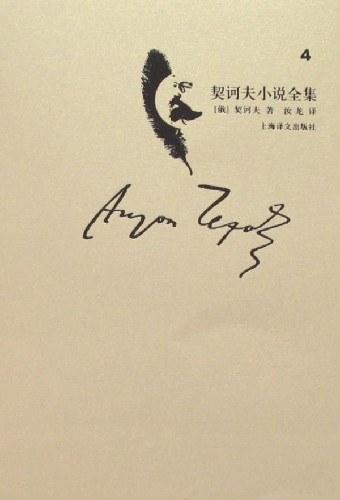 4
契诃夫小说全集
[俄] 契诃夫 著 汝龙 译
上海译文出版社